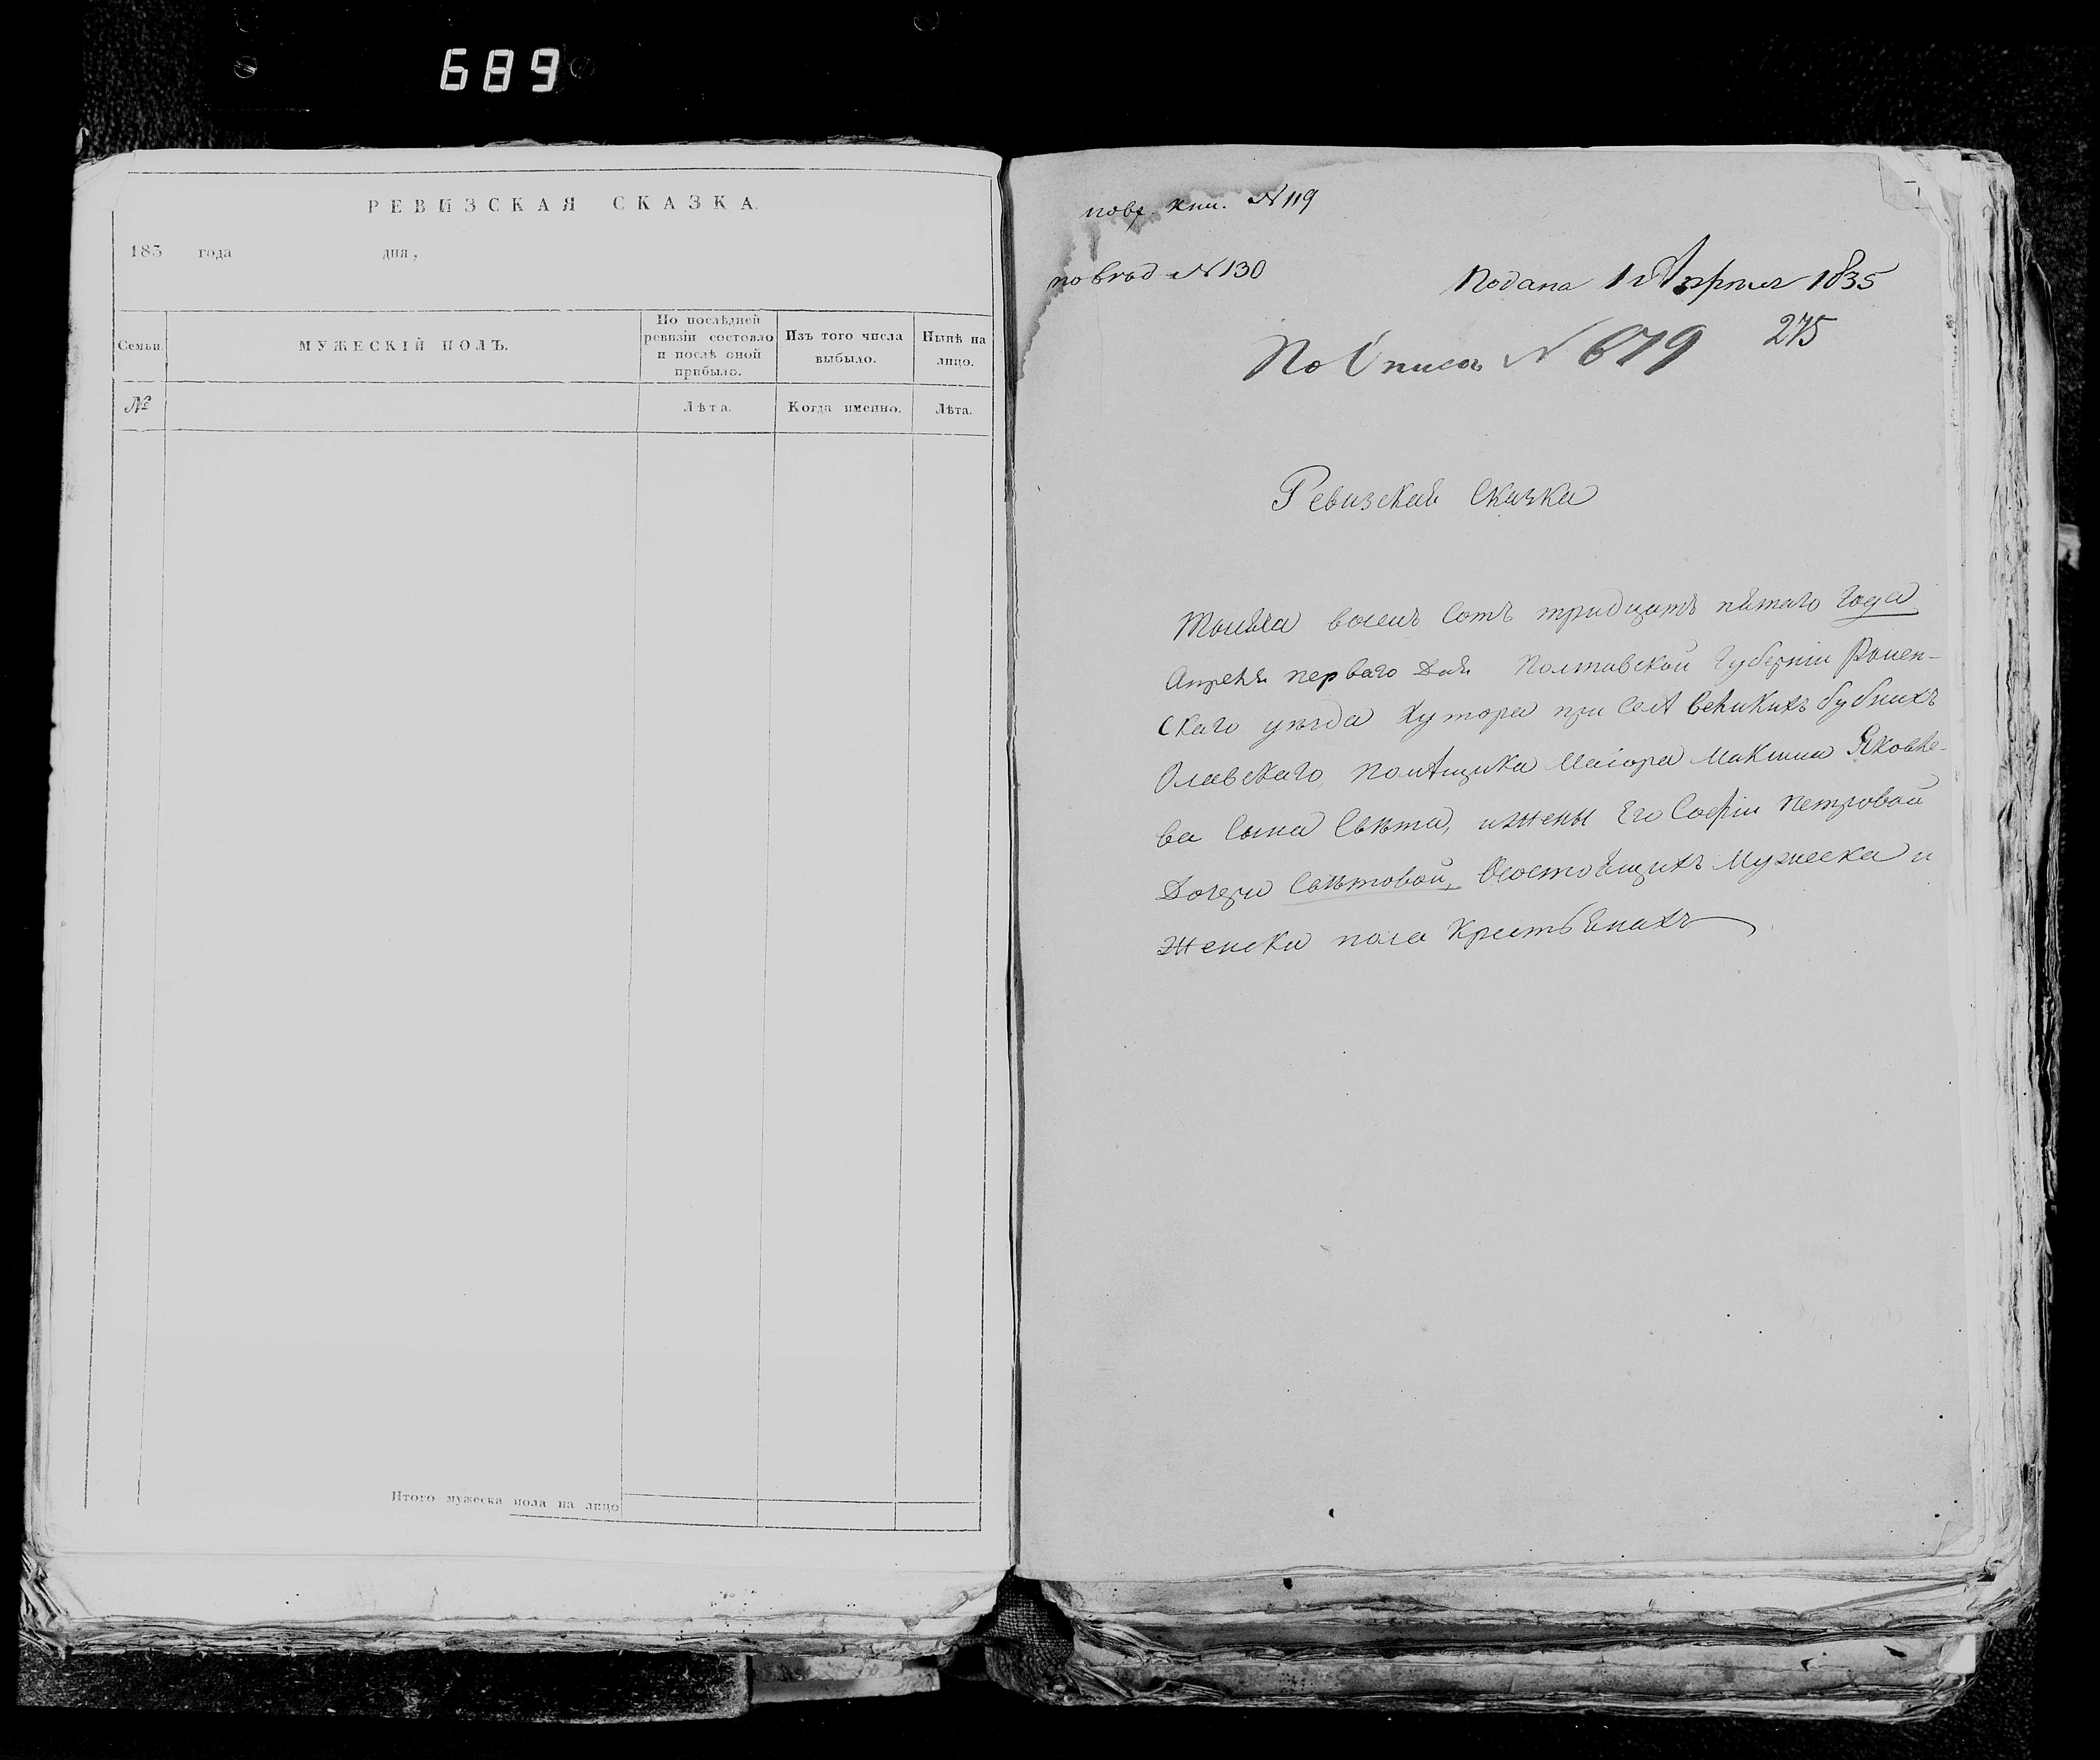 689
РЕВИЗСКАЯ СКАЗКА.
183 года дня,
Семьи.
МУЖЕСКІЙ ПОЛЪ.
По послѣдней ревизіи состояло и послѣ оной прибыло.
Изъ того числа выбыло.
Нынѣ на лицо.
№
Лѣта.
Когда именно.
Лѣта.
Итого мужеска пола на лицо
кни. N 119
N 130
Подана 1 Апреля 1835
275
По Описи N 679
Ревизская Сказка
Тысяча восемь сотъ тридцать пятаго года
Апреля перваго дня Полтавской Губерніи Ромен-
скаго уѣзда Хутора при селѣ великихъ бубнахъ
помѣщика Маіора Максима Яковле-
ва сына Свѣта, и жены Его Софіи Петровой
Дочери Свѣтовой, Осостоящихъ Мужеска и
Женска пола Крестьянахъ